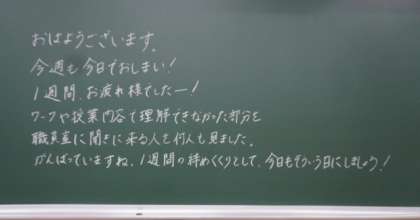 おはようございます。
今週も今日でおしまい!
1週間、お疲れ様でしたー!
ワークや授業内容で理解できなかった部分を
職員室に聞きに来る人を何人も見ました。
がんばっていますね。1週間の締めくくりとして、今日もそういう日にしましょう!